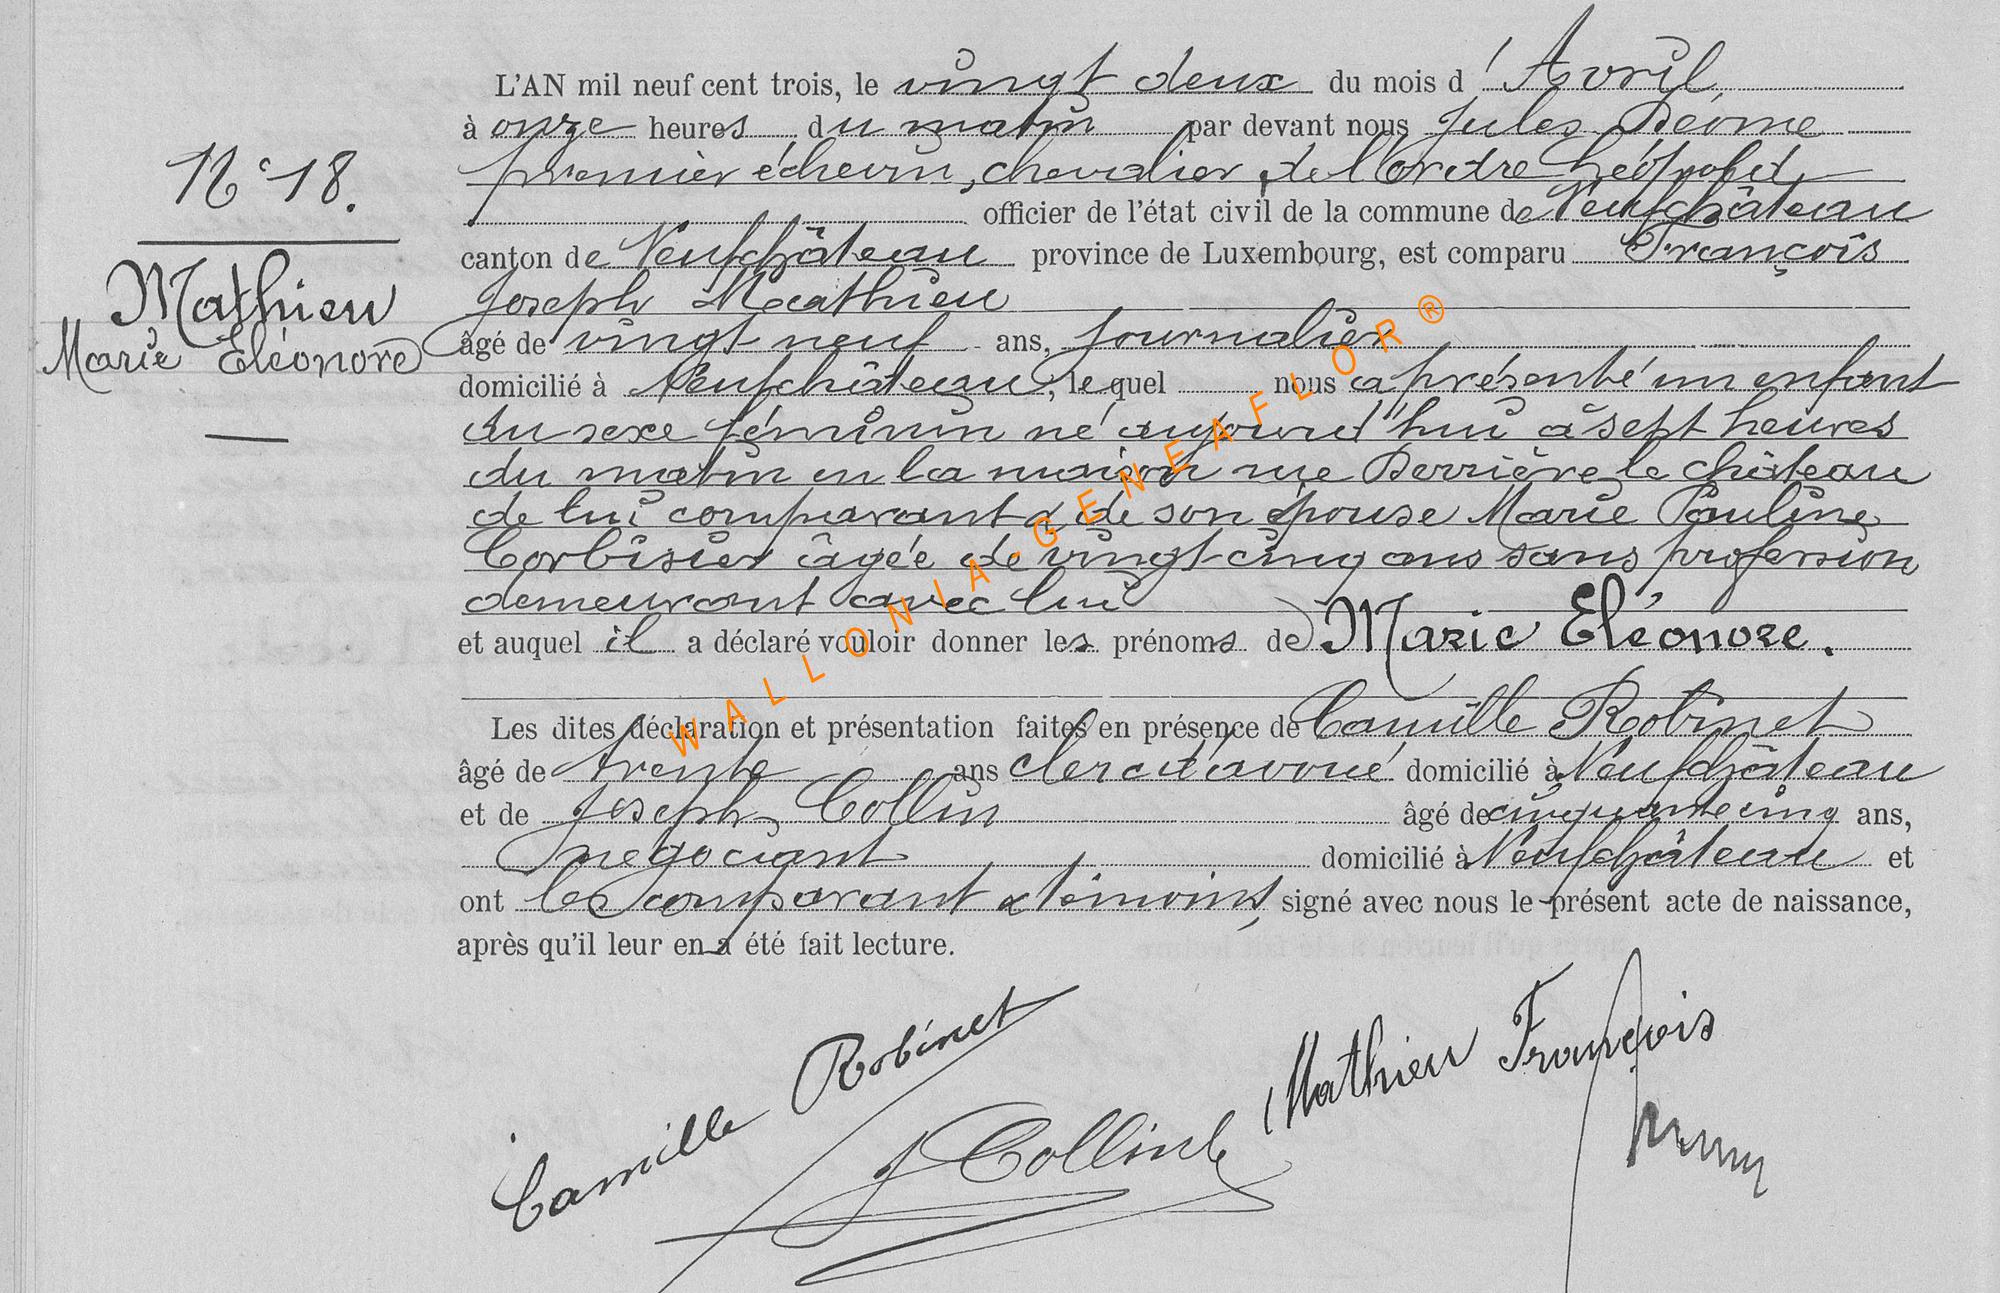 N° 18.
Mathieu
Marie Eléonore
L'AN mil neuf cent trois, le vingt deux du mois d'Avril
à onze heures du matin par devant nous Jules
premier échevin, chevalier de l'Ordre Léopold,
officier de l'état civil de la commune de Neufchâteau
canton de Neufchâteau province de Luxembourg, est comparu François
Joseph Mathieu
âgé de vingt neuf ans, journalier
domicilié à Neufchâteau, lequel nous a présenté un enfant
du sexe féminin né aujourd'hui à sept heures
du matin en la maison rue Derrière le château
de lui comparant & de son épouse Marie Pauline
Corbisier âgée de vingt-cinq ans sans profession
demeurant avec lui
et auquel il a déclaré vouloir donner les prénoms de Marie Eléonore.
Les dites déclaration et présentation faites en présence de Camille Robinet
âgé de trente ans clerc d'avoué domicilié à Neufchâteau
et de Joseph Collin âgé de cinquante cinq ans,
négociant domicilié à Neufchâteau et
ont les comparant & témoins, signé avec nous le présent acte de naissance,
après qu'il leur en a été fait lecture.
Camille Robinet
J Collin
Mathieu François
WALLONIA-GENEAFLOR®